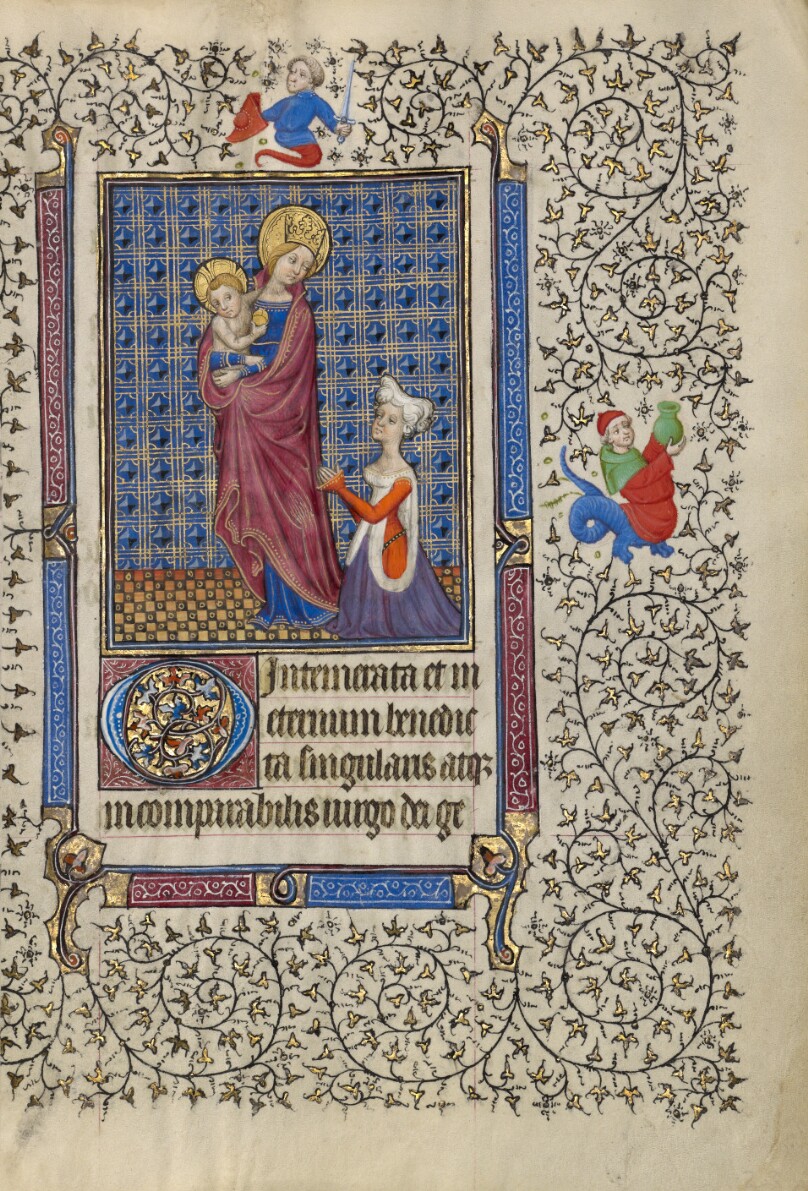 O Intemerata et in
eternum benedic
ta singularis atqz
incomparabilis uirgo dei ge